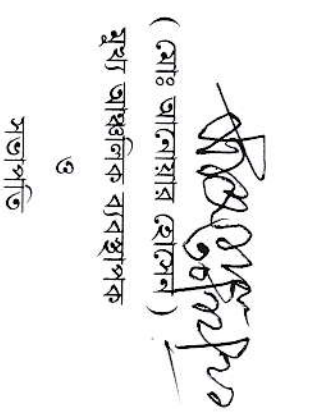 ( মোঃ আনোয়ার হোসেন )
মুখ্য আঞ্চলিক ব্যবস্থাপক
ও
সভাপতি